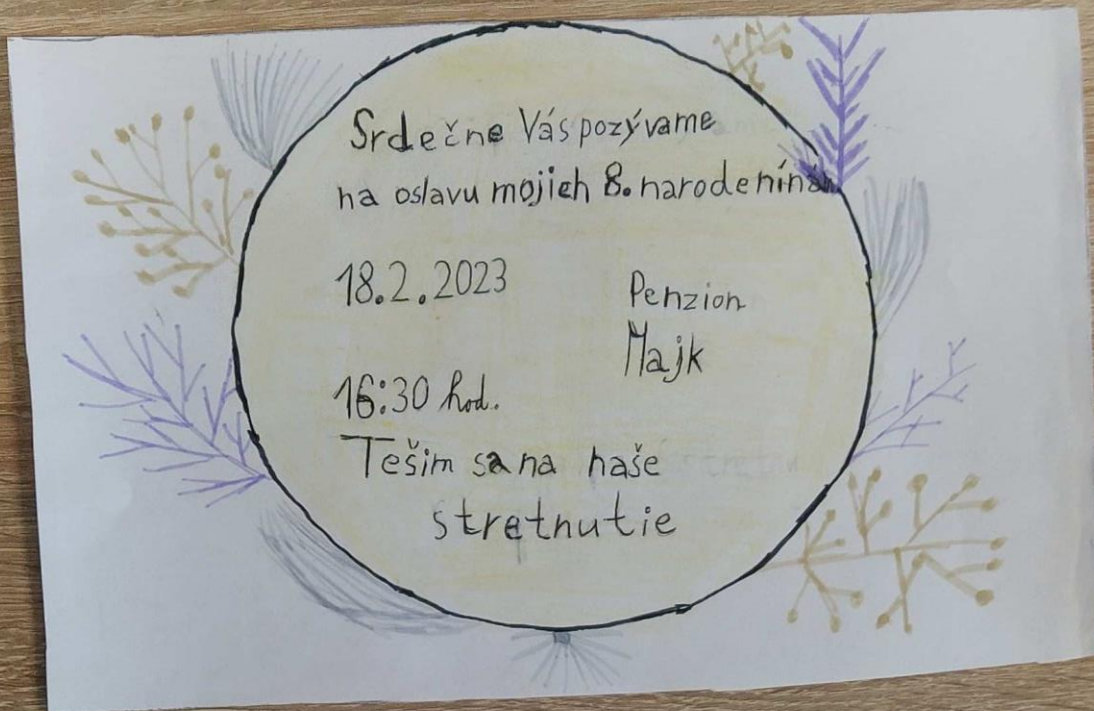 Srdečne Vás pozývame
na oslavu mojich 8. narodenín
18.2.2023
Penzion
Majk
16:30 hod.
Tešim sa na naše
stretnutie